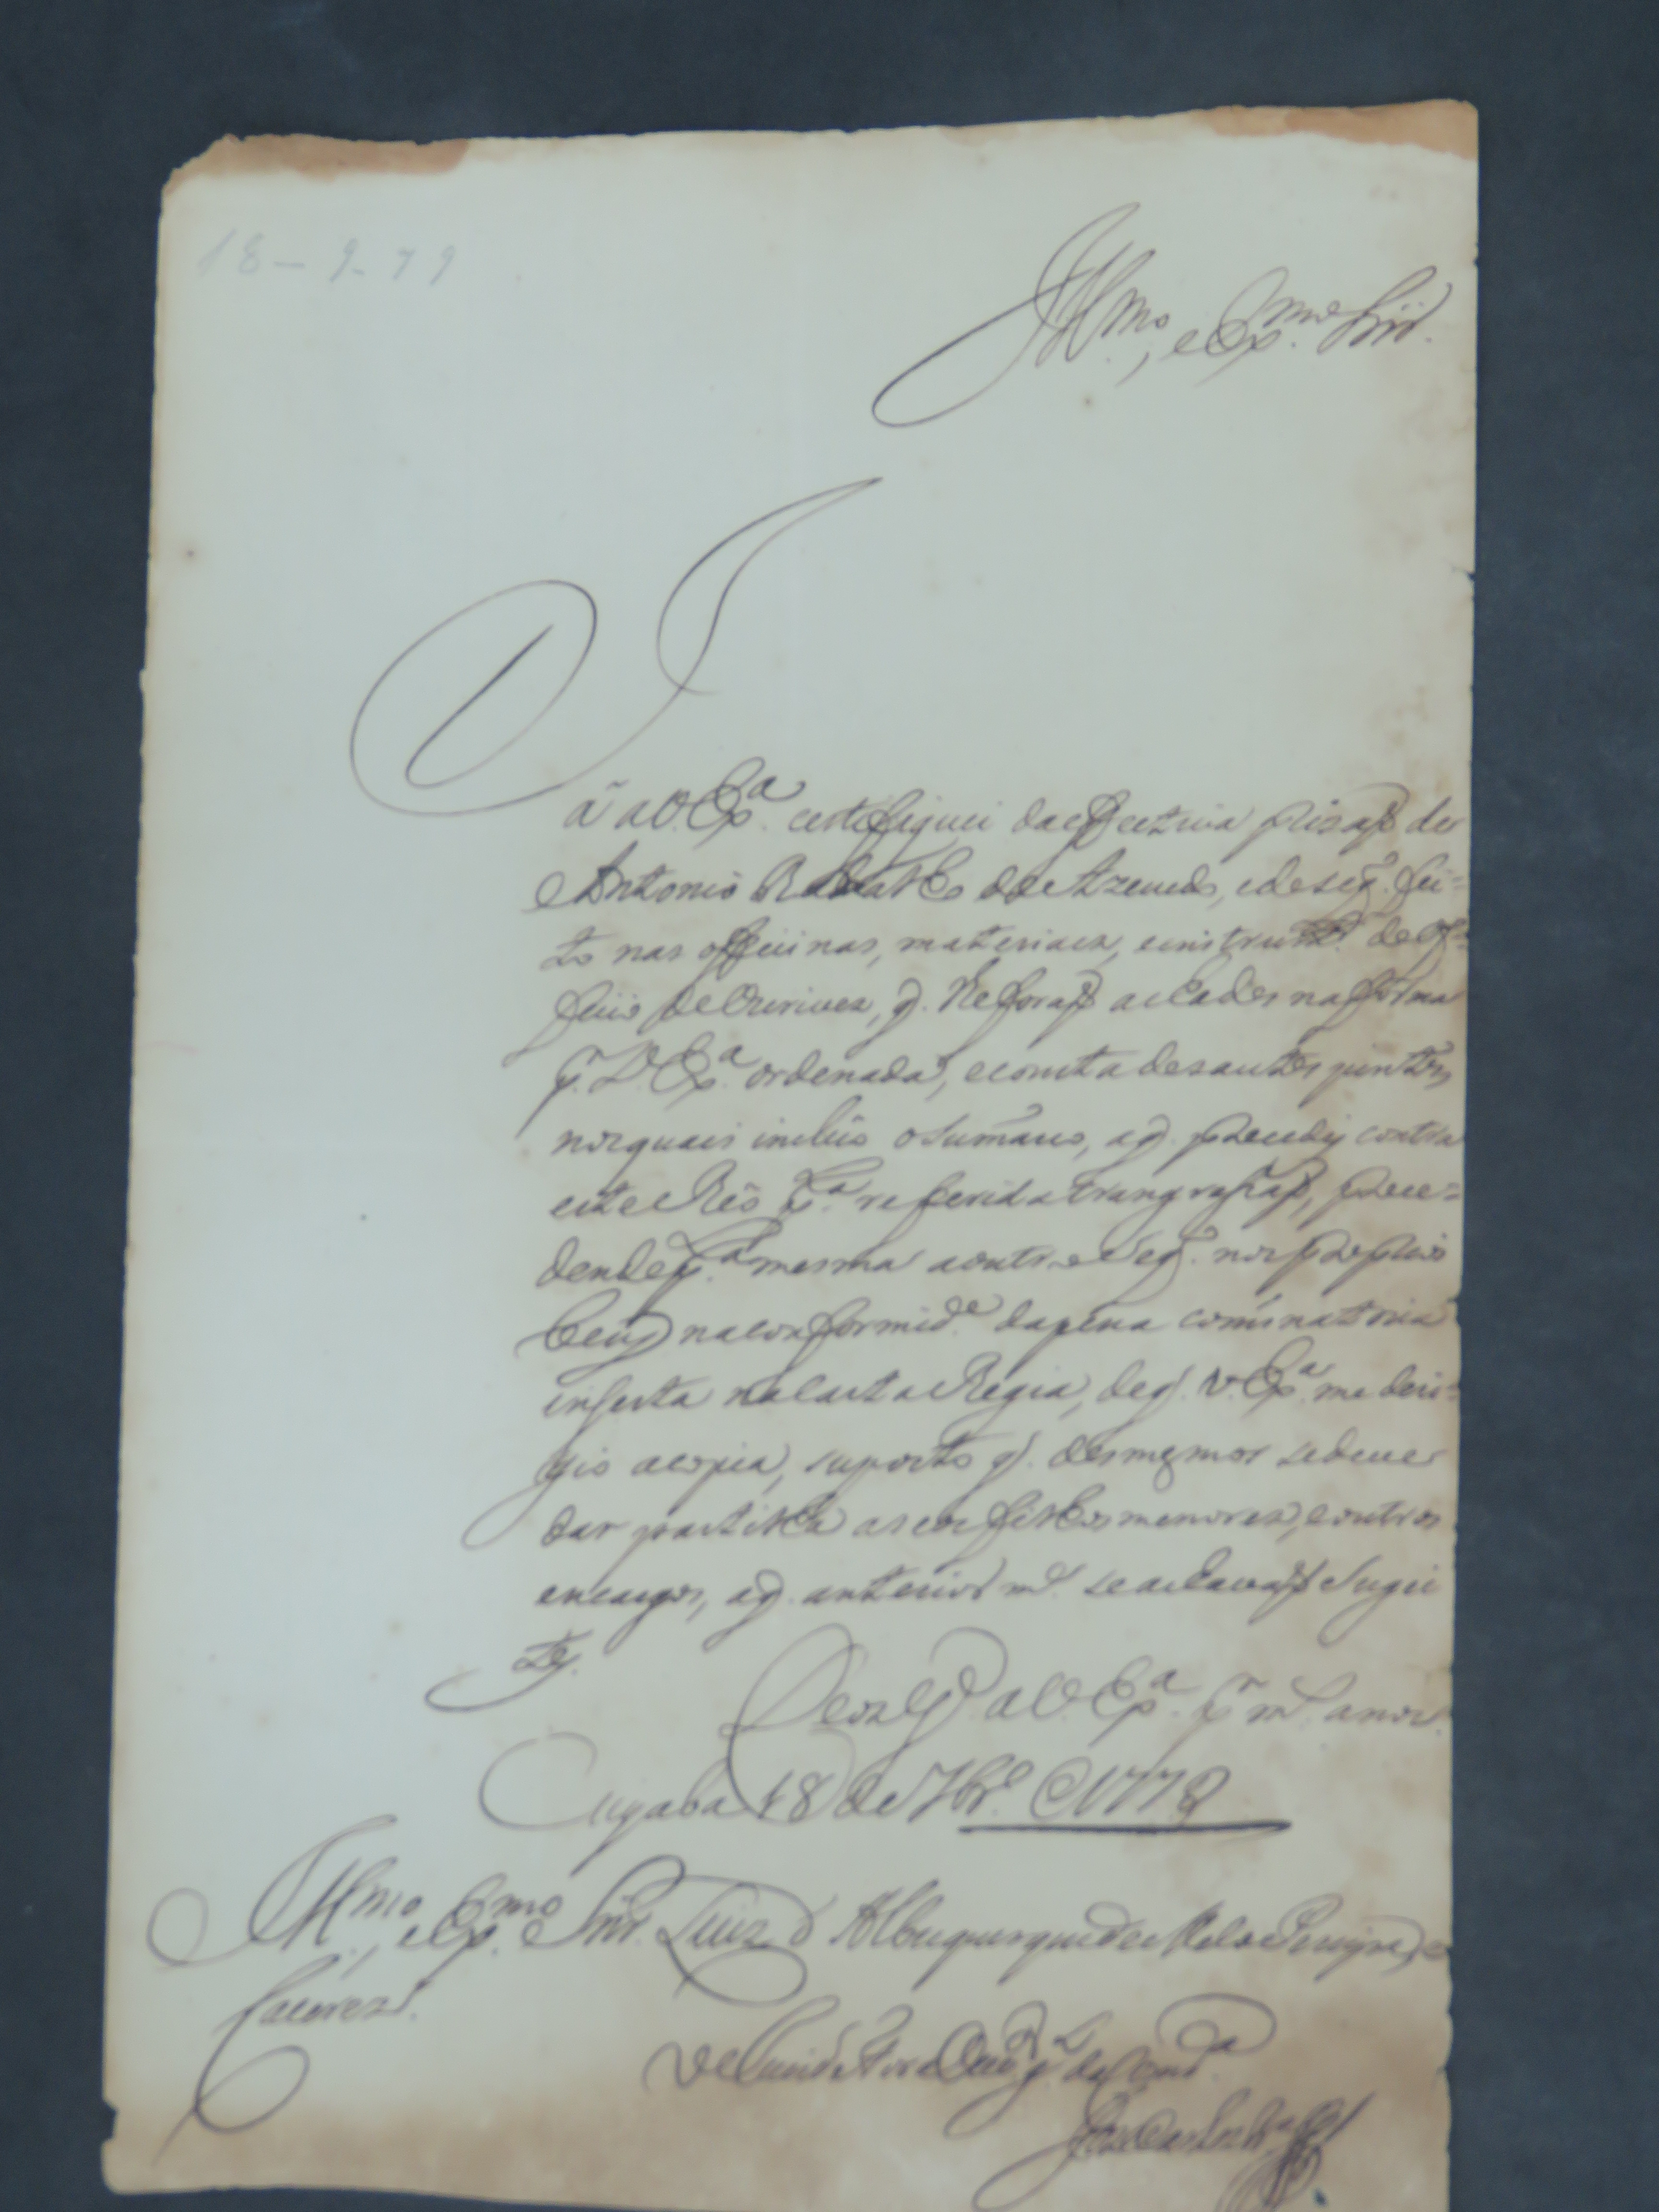 18-9-79
Illmo., e Exmo. Snr.
Já a V. Exa. certefiquei da effectiva prizaõ de
Antonio de Azevedo, e de seq. fei=
to nas officinas, materiaes, e instrum. de Of=
ficio de Ourives, q. lhe foraõ achados na forma
pr. V. Exa. ordenada, e consta dos autos juntos,
nos quais incluo o sumario, a q. procedy contra
este Reo pla. referida transgraçaõ, proce=
dendo pla. mesma a outro seq. nos proprios
bens na conformide. da pena cominatoria
inserta na Carta Regia, de q. V. Exa. me deri=
gio a copia, suposto q. dos mesmos se deve
dar partilha a seos filhos menores, e outros
encargos, a q. anteriormte. se achavaõ sugei
tos.
Deos Gde. a V. Exa. pr. ms. annos.
Cuyaba 18 de 7bro. de 1779
Illmo., e Exmo. Snr. Luiz d Albuquerque de Mello Pereyra, e
Caceres.
O Juiz de Fora Ouvor. gl. da Coma.